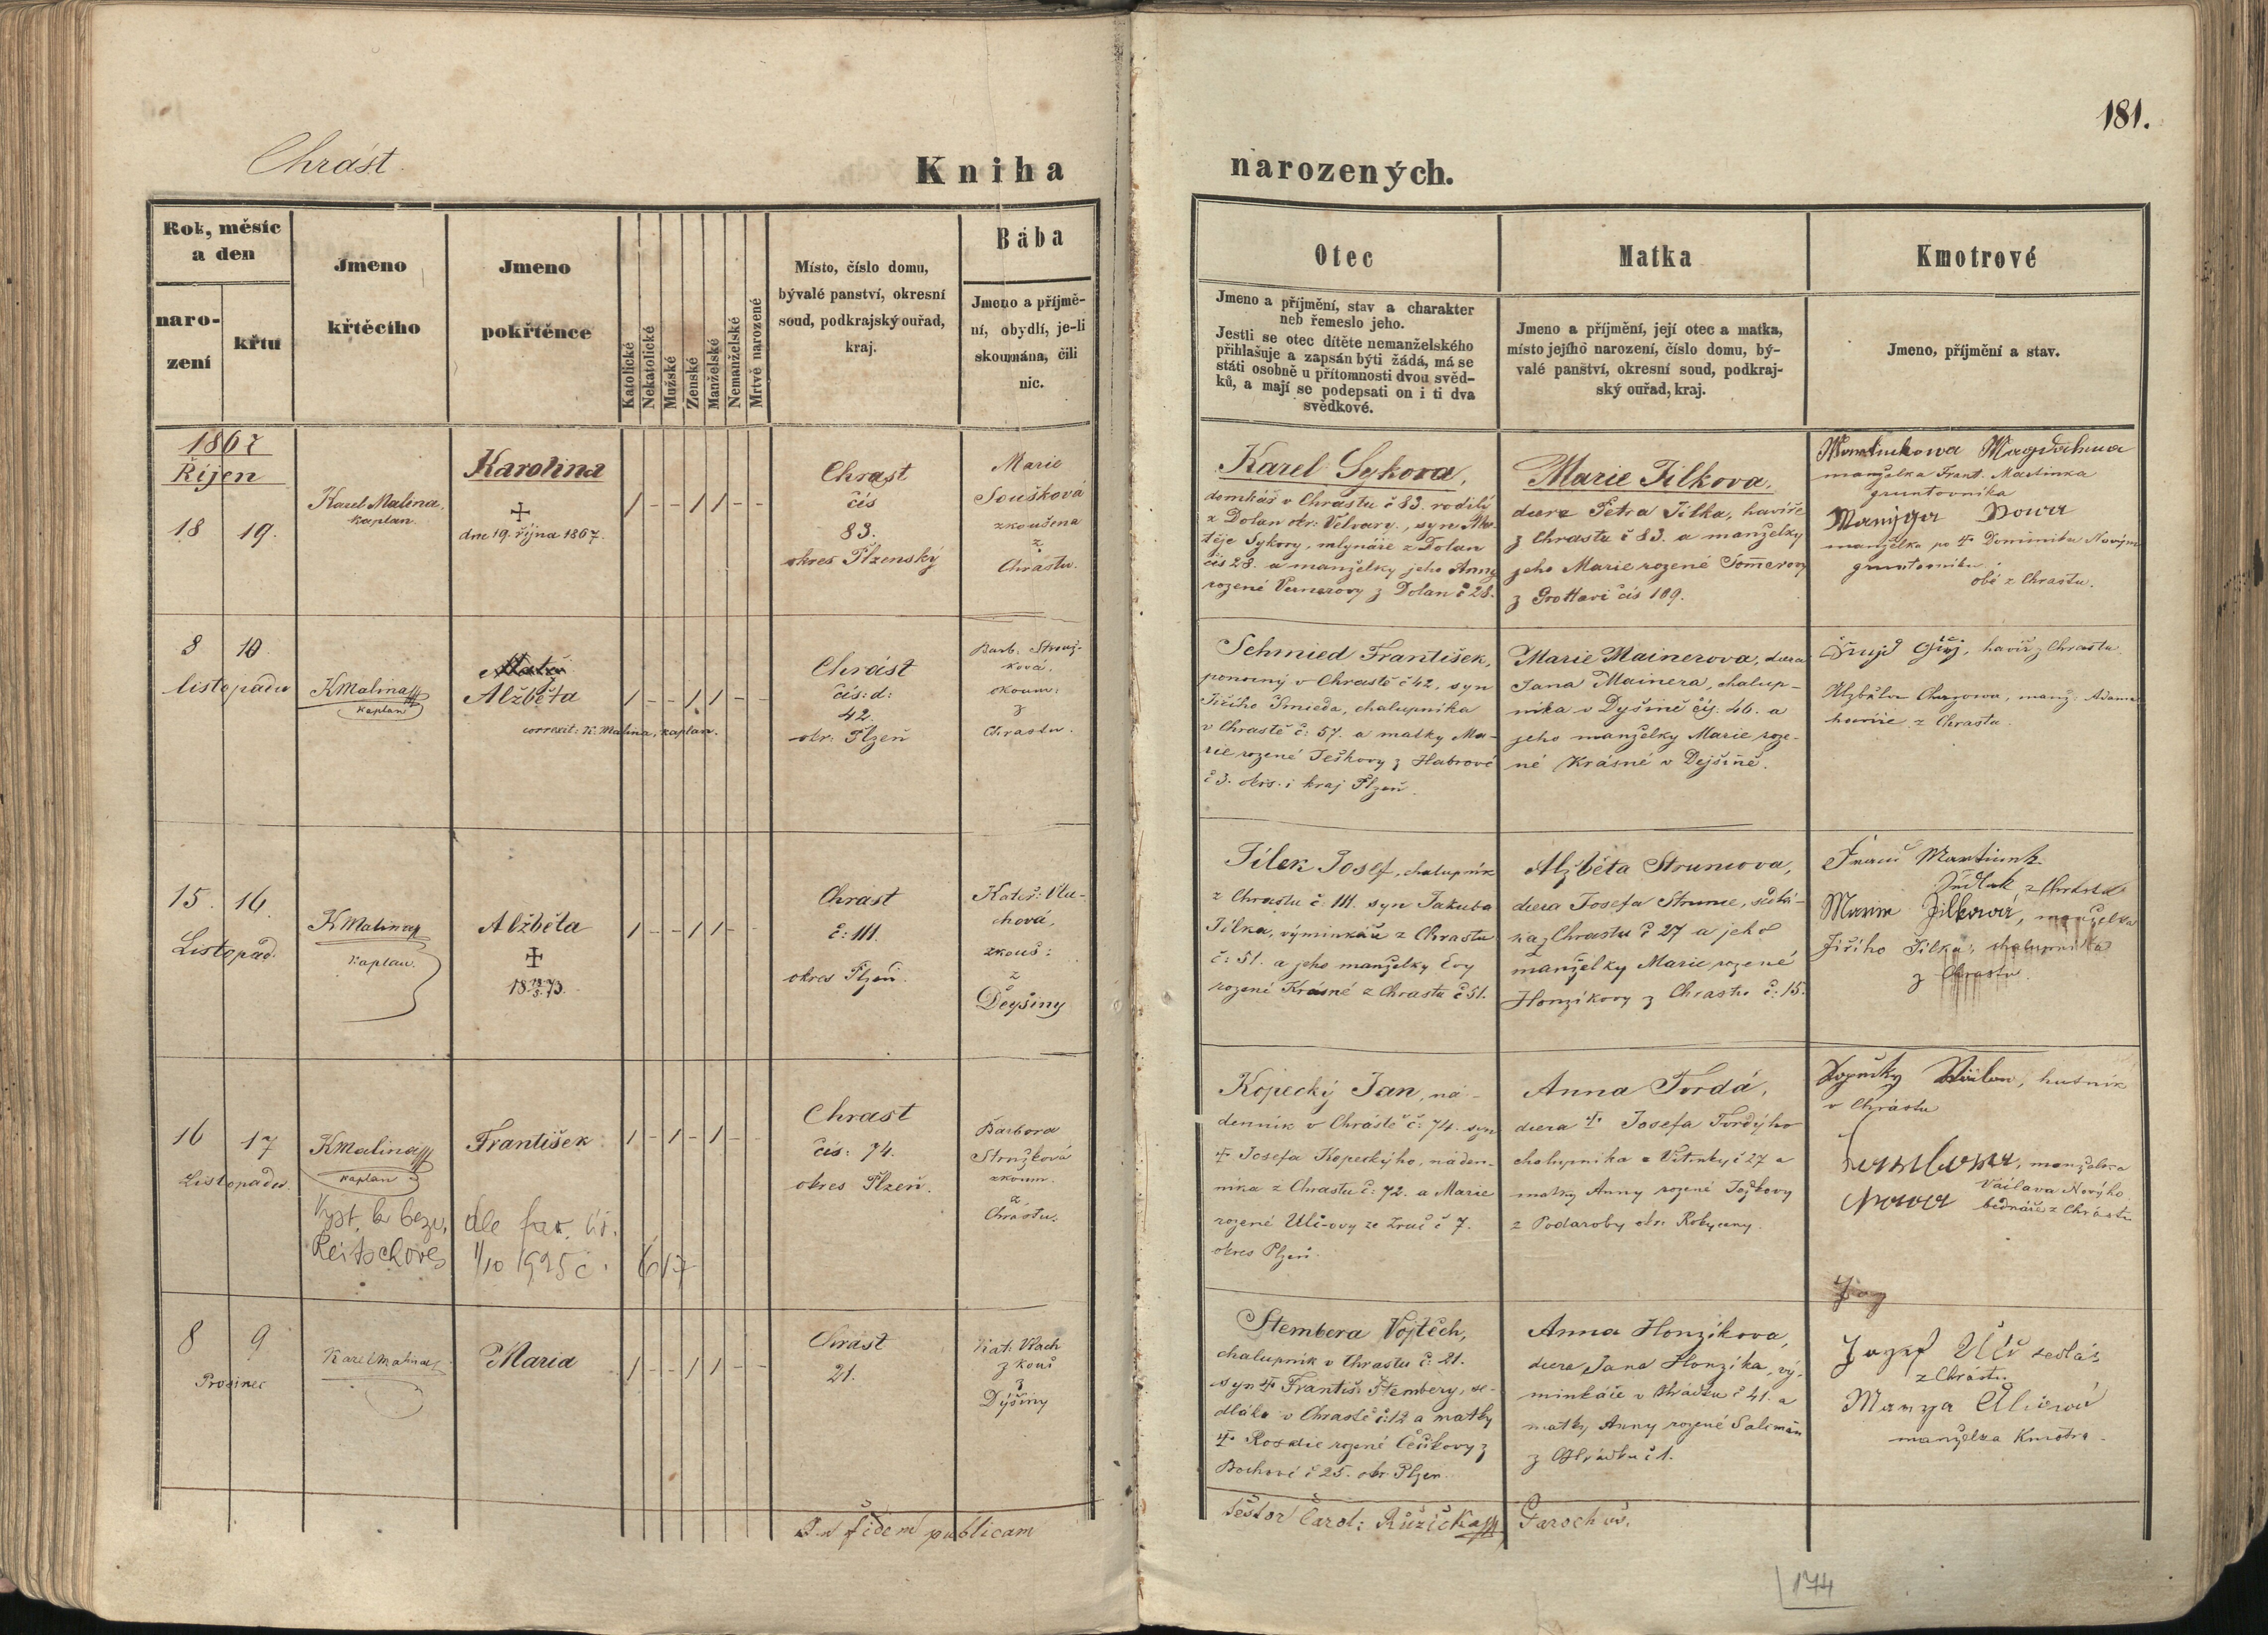 181.
Chrást
Kniha narozených.
Rok, měsíc
a den
naro-
zení
křtu
Jmeno
křtěcího
Jmeno
pokřtěnce
Katolické
Nekatolické
Mužské
Ženské
Manželské
Nemanželské
Mrtvě narozené
Místo, číslo domu,
bývalé panství, okresní
soud, podkrajský ouřad,
kraj.
Bába
Jmeno a příjmě-
ní, obydlí, je-li
skoumána, čili
nic.
Otec
Jmeno a příjmění, stav a charakter
neb řemeslo jeho.
Jestli se otec dítěte nemanželského
přihlašuje a zapsán býti žádá, má se
státi osobně u přítomnosti dvou svěd-
ků, a mají se podepsati on i ti dva
svědkové.
Matka
Jmeno a příjmění, její otec a matka,
místo jejího narození, číslo domu, bý-
valé panství, okresní soud, podkraj-
ský ouřad, kraj.
Kmotrové
Jmeno, příjmění a stav.
1867
Říjen
18 19.
Karel Malina,
kaplan.
Karolina
dne 19. října 1867.
/ - - / / - -
Chrast
čis
83.
okres Plzenský
Marie
Soušková
zkoušena
z
Chrástu.
Karel Sykora,
domkář v Chrástu č 83. rodilý
z Dolan okr: Velvary., syn Ma-
těje Sykory, mlynáře z Dolan
čis 28. a manželky jeho Anny
rozené Vernerovy z Dolan č 28.
Marie Jilkova,
dcera Petra Jilka, havíře
z Chrastu č 83. a manželky
jeho Marie rozené Somerovy
z Grottavi čis 109.
Martinkowa Magdalena
manželka Frant. Martinka
gruntovníka
Manžga Nowa
manželka po Dominiku Novým
gruntovníku
obě z Chrastu.
8 10.
listopadu
K Malina
kaplan
Alžběta
correxit: K. Malina, kaplan.
/ - - / / - -
Chrást
čis: d:
42.
okr: Plzeň
Barb. Strouž-
ková.
zkoum:
z
Chrastu.
Schmied František,
ponocný v Chrastě č 42, syn
Jiřího Šmieda, chalupníka
v Chrastě č: 57. a matky Ma-
rie rozené Ješkovy z Habrové
č 3. okrs. i kraj Plzeň.
Marie Mainerova, dcera
Jana Mainera, chalup-
níka v Dyšině čís: 46. a
jeho manželky Marie roze-
né Krásné v Dejšině.
havíř z Chrastu.
manž: Adama
havíře z Chrastu.
15. 16.
Listopad.
K Malina
Kaplan.
Alžběta
/ - - / / - -
Chrast
č: 111.
okres Plzeň.
Kateř: Vla-
chová,
zkouš:
z
Deyšiny
Jílek Josef, chalupník
z Chrastu č: 111. syn Jakuba
Jílka, výminkáře z Chrastu
č: 51. a jeho manželky Evy
rozené Krásné z Chrastu č 51.
Alžběta Struncova,
dcera Josefa Strunce, sedlá-
ka z Chrastu č 27 a jeho
manželky Marie rozené
Honzíkovy z Chrastu č: 15.
Martinek
z Chrastu
Jilkowá, manželka
Jiřího Jílka, chalupníka
z Chrastu.
16 17
Listopadu.
K Malina
kaplan
František
/ - / - / - -
Chrast
čis: 74.
okres Plzeň.
Barbora
Stroužková
zkoum.
z
Chrástu.
Vyst. k bezu. dle far. úř.
Reitschoves 1/10 1925 č. 617
Kopecký Jan, ná-
denník v Chrástě č: 74. syn
Josefa Kopeckýho, náden-
níka z Chrastu č: 72. a Marie
rozené Ulč-ovy ze Zruč č 7.
okres Plzeň.
Anna Tvrdá,
dcera Josefa Tvrdýho
chalupníka z Vitinky č 27 a
matky Anny rozené Joškovy
z Podaroby okr: Rokycany.
hutník
v Chrástu
Nowa
manželka
Václava Novýho
bednáře z Chrástu
8 9
Prosinec
Karel Malina
Maria
/ - - / / - -
Chrast
21.
Kat: Vlach
zkouš
z
Dýšiny
Stembera Vojtěch,
chalupník v Chrastu č: 21.
syn Františ: Štembery, se-
dláka v Chrastě č: 12 a matky
Rosalie rozené Češkovy z
Bochové č 25. okr. Plzen.
Anna Honzíkova,
dcera Jana Honzíka, vý-
minkáře v Hrádku č 41. a
matky Anny rozené Saleman
z Hrádku č 1.
Jozef Ulč sedlák
z Chrástu
Marya Ulčová
manželka Kmotra.
In fidem publicam
testor Carol: Růžička Parochus.
174